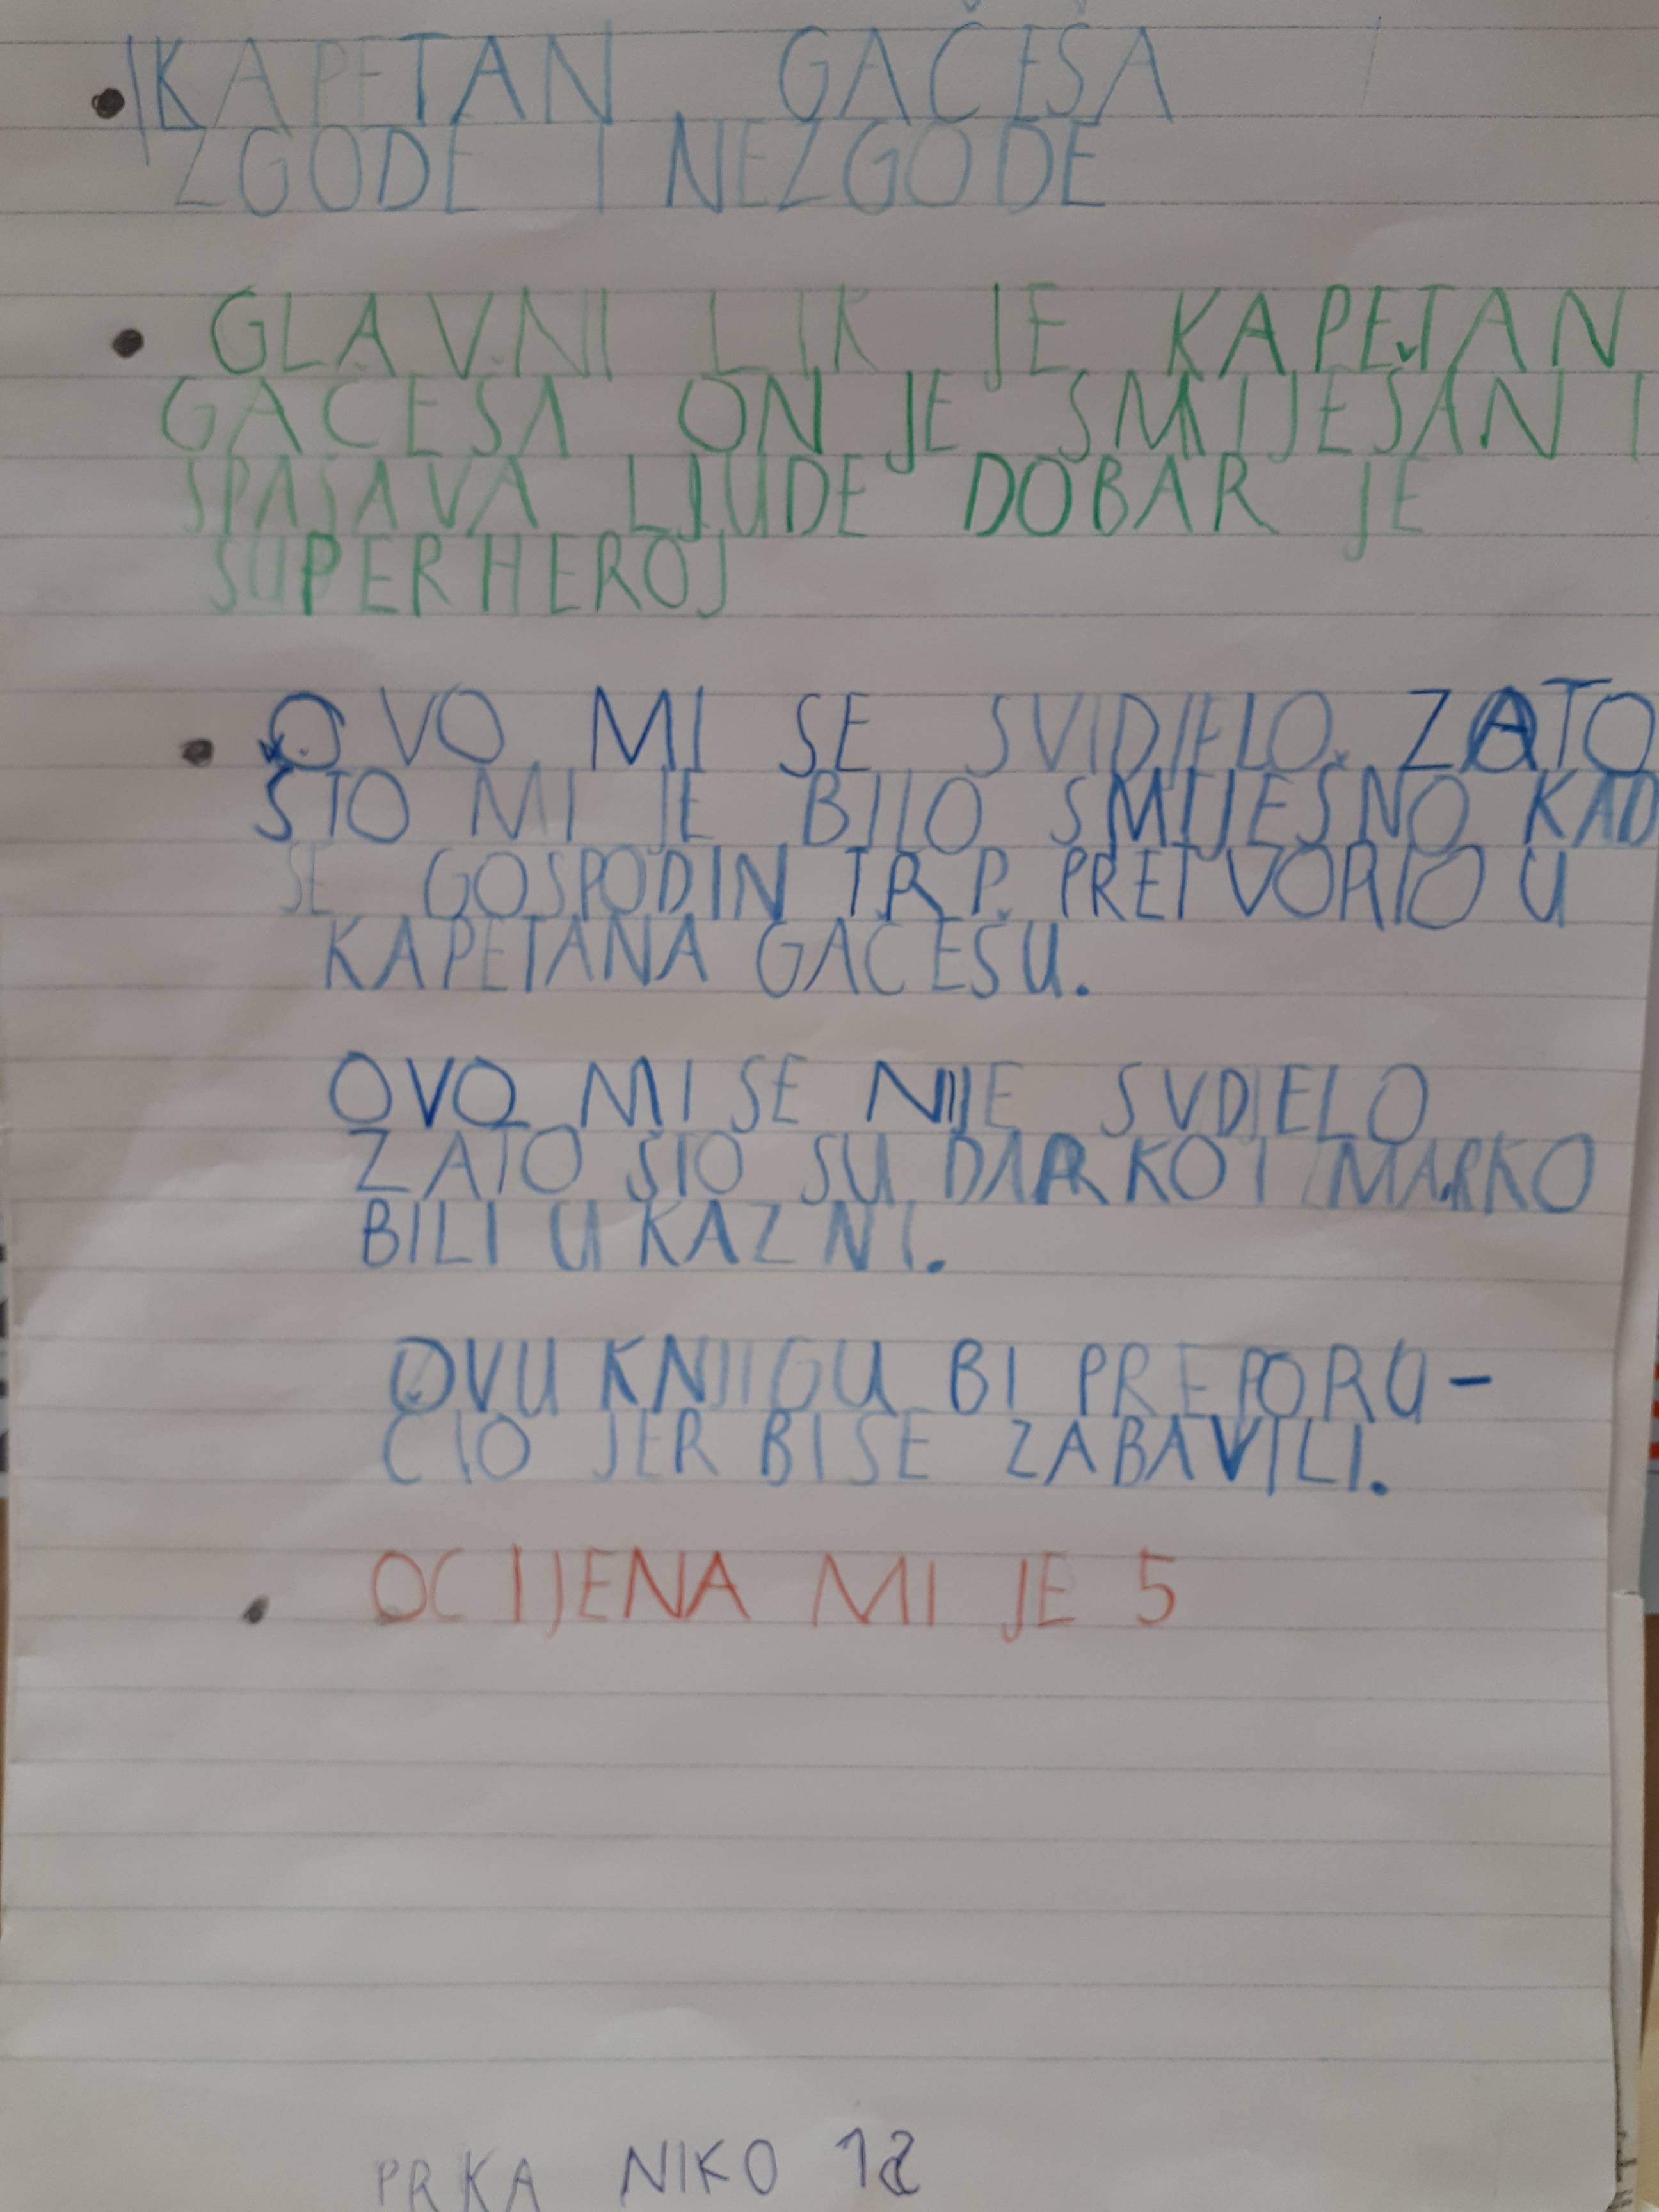 KAPETAN GAČEŠA
ZGODE I NEZGODE
GLAVNI LIK JE KAPETAN
GAČEŠA ON JE SMIJEŠAN I
SPAŠAVA LJUDE DOBAR JE
SUPERHEROJ
OVO MI SE SVIDJELO ZATO
ŠTO MI JE BILO SMIJEŠNO KAD
SE GOSPODIN T.R.P. PRETVORIO U
KAPETANA GAČEŠU.
OVO MI SE NIJE SVDJELO
ZATO ŠTO SU DARKO I MARKO
BILI U KAZNI.
OVU KNJIGU BI PREPORU-
ČIO JER BI SE ZABAVILI.
OCIJENA MI JE 5
PRKA NIKO